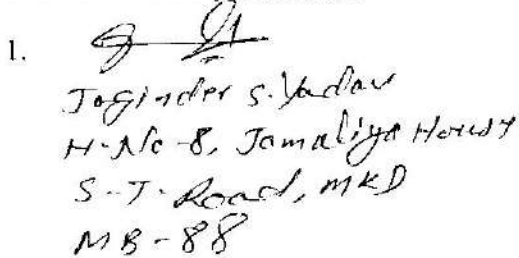 1.
Joginder S. Yadav
H. No - 8, Jamaliya House
S - T - Road, MKD
MB - 88